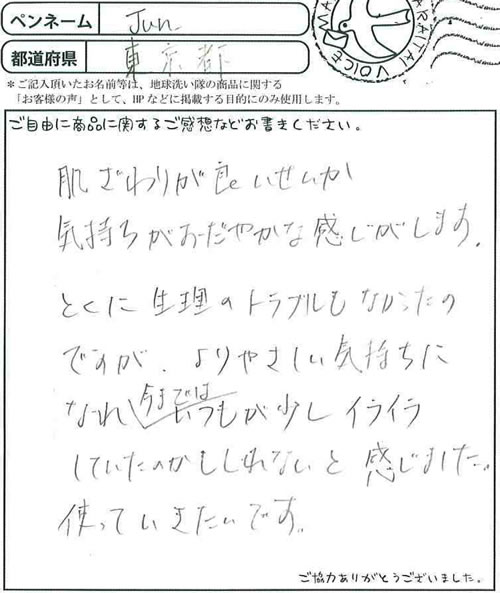 ペンネーム Jun.
都道府県 東京都
＊ご記入頂いたお名前等は、地球洗い隊の商品に関する
「お客様の声」として、HPなどに掲載する目的にのみ使用します。
VOICE MA ARAITAI
ご自由に商品に関するご感想などお書きください。
肌ざわりが良いせいか
気持ちがおだやかな感じがします。
とくに生理のトラブルもなかったの
ですが、よりやさしい気持ちに
なれ、今までは
いつもが少しイライラ
していたのかもしれないと感じました。
使っていきたいです。
ご協力ありがとうございました。